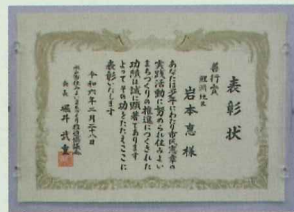 表彰状
善行賞
鯉淵地区
岩本恵 様
あなたは多年にわたり市民憲章の
実践活動に努められ住みよい
まちづくりの推進につくされた
功績は誠に顕著であります
よってその功をたたえここに
表彰いたします
令和六年二月二十八日
水戸市住みよいまちづくり推進協議会
会長 堀井武重